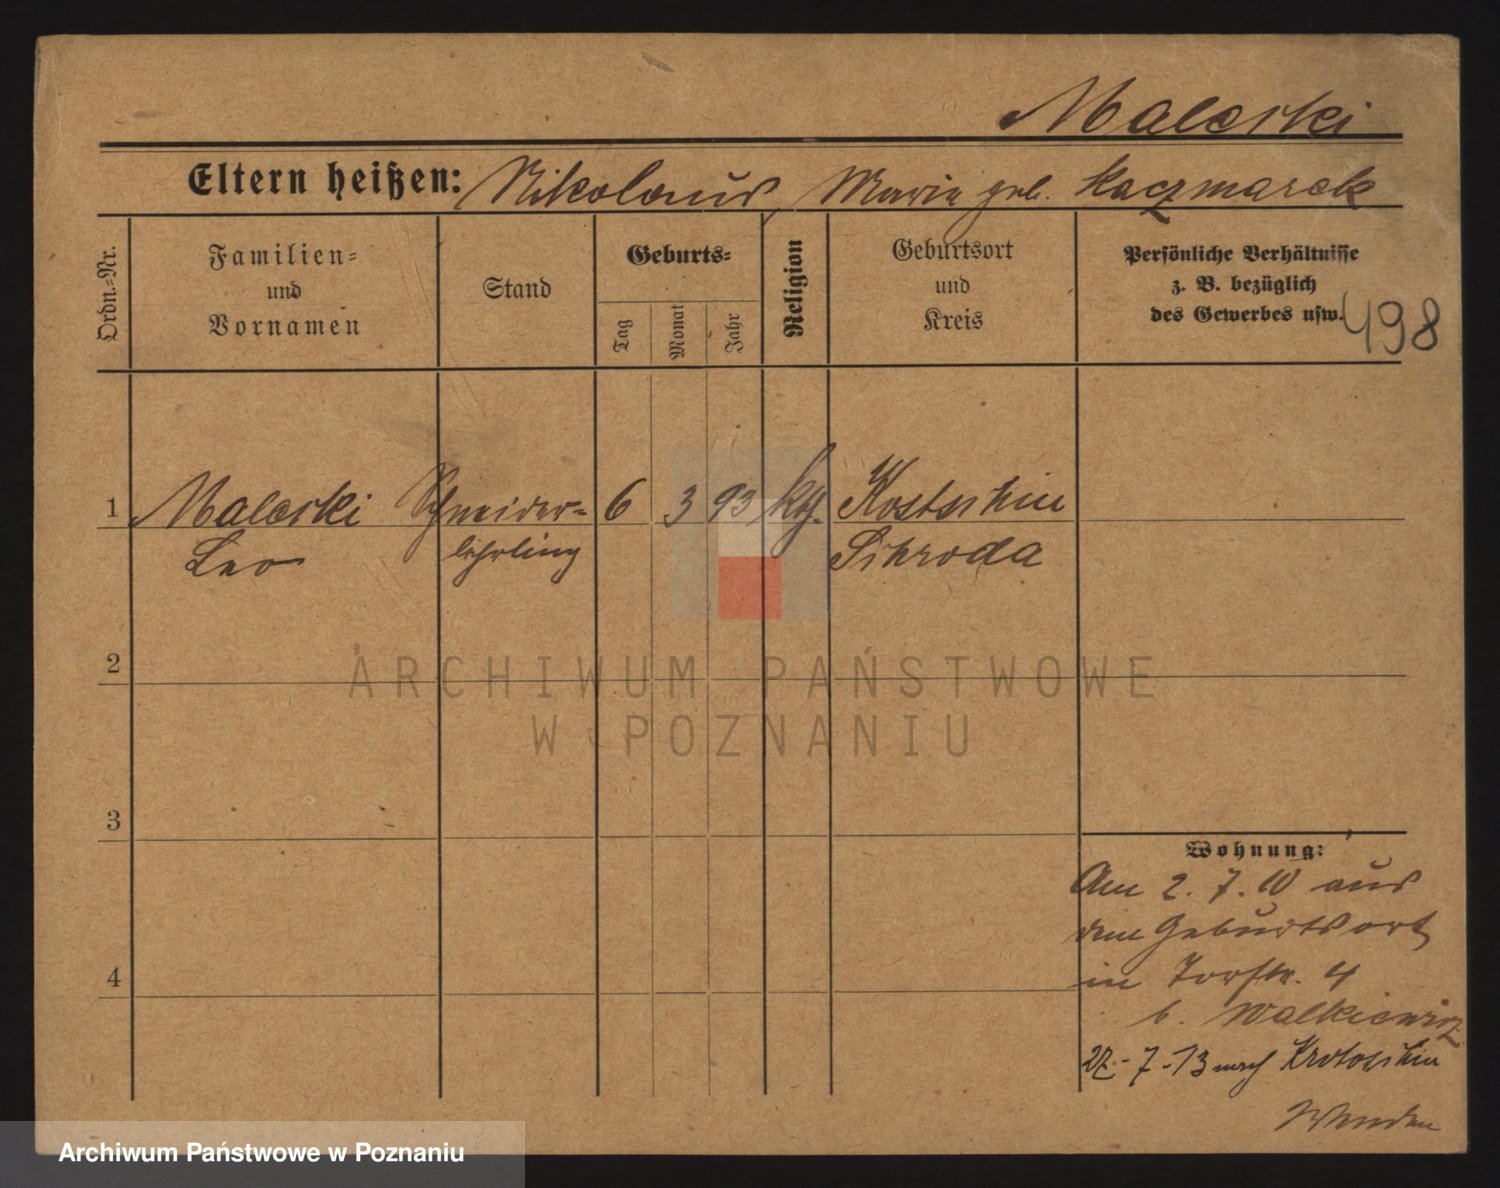 Maleski
Eltern heißen: Nikolaus, Maria geb. Kaczmarek
Ordn.-Nr.
Familien-
und
Vornamen
Stand
Geburts-
Tag
Monat
Jahr
Religion
Geburtsort
und
Kreis
Persönliche Verhältnisse
z. B. bezüglich
des Gewerbes usw.
498
1 Maleski Schneider- 6 3 93 kth. Kostschin
Leo lehrling Schroda
2
ARCHIWUM PAŃSTWOWE
W POZNANIU
3
Wohnung:
Am 2. 7. 10 aus
dem Geburtsort
4
in Torstr. 4
b. Walkiewicz
27.-7-13 nach Krotoschin
Wenden
Archiwum Państwowe w Poznaniu